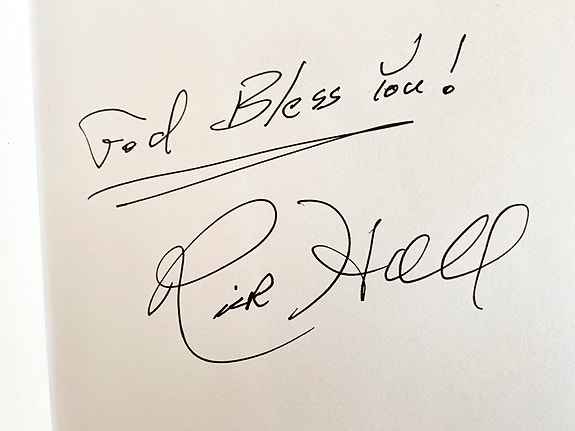 God Bless You!
Rick Hall